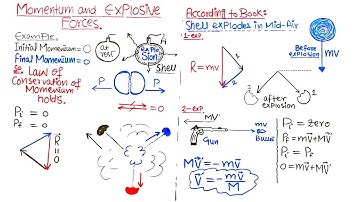 Momentum and Explosive
Forces.
Example.
Initial Momentum = 0
Final Momentum = 0
so Law of
Conservation of
Momentum
holds.
Pi = 0
Pf = 0
R = 0
at rest
Explosion
Shell
P
P
= 0
According to Book:
Shell explodes in Mid-Air
1-exp
R = mv
1
2
Before
explosion
mv
2
1
after
explosion
2-exp
MV
Gun
mv
Bullet
MV = -mv
V = -mv/M
Pi = zero
Pf = mv + MV
Pi = Pf
0 = mv + MV